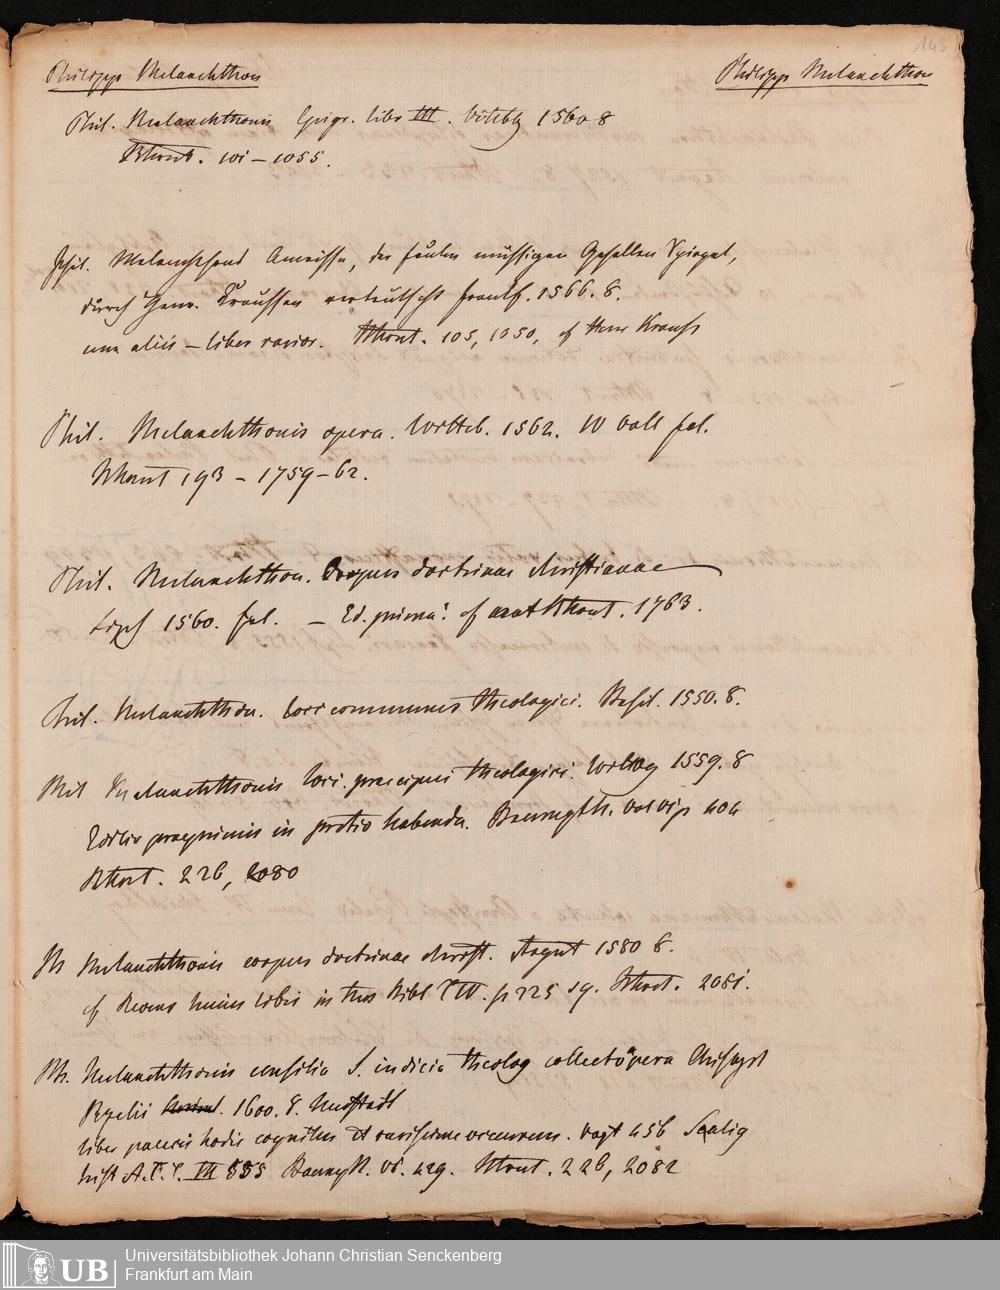 145
Philipp Melanchthon Philipp Melanchthon
Phil. Melanchthonis Epigr. libr III. Vitebg 1560 8
101 – 1055.
Phil. Melanchthons Ameisse, der faulen müssigen Gesellen Spiegel,
durch Henr. Kraussen verteutscht Frankf. 1566. 8.
una aliis – liber rarior. Whort. 105, 1050, cf Henr Krauss
Phil. Melanchthonis opera. Witteb. 1562. IV Voll fol.
193 – 1759–62.
Phil. Melanchthon. Corpus doctrinae christianae
Lips 1560. fol. – Ed. prima: cf 1763.
Phil. Melanchthon. Loci communes theologici. Basil. 1550. 8.
Phil Melanchthonis loci praecipui theologici. Witteg 1559. 8
Editio in pretio habenda. Baumgth. vol VI p 404
226, 2080
Ph Melanchthonis corpus doctrinae christ. Argent 1580 8.
cf huius libri in Bibl T IV. p 225 sq. 2081.
Ph. Melanchthonis consilia s. iudicia theolog collecta opera Christoph
Pezelii 1600. 8. Neostadt
liber paucis hodie cognitus et rarissime occurrens. Vogt 456 Scalig
VII 555 Baumgth. VI. 429. 226, 2082
Universitätsbibliothek Johann Christian Senckenberg
Frankfurt am Main
UB